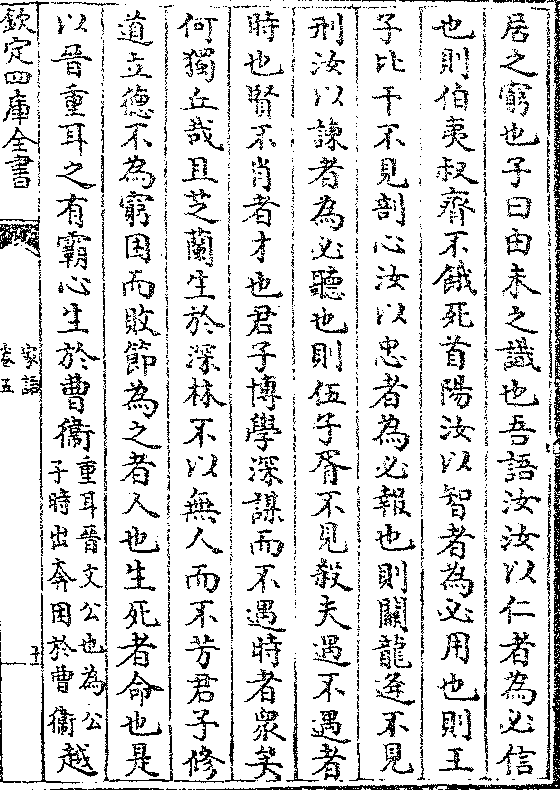 居之窮也子曰由未之識也吾語汝汝以仁者為必信
也則伯夷叔齊不餓死首陽汝以智者為必用也則王
子比干不見剖心汝以忠者為必報也則關龍逄不見
刑汝以諫者為必聽也則伍子胥不見殺夫遇不遇者
時也賢不肖者才也君子博學深謀而不遇時者衆矣
何獨丘哉且芝蘭生於深林不以無人而不芳君子修
道立德不為窮困而敗節為之者人也生死者命也是
以晉重耳之有霸心生於曹衞重耳晉文公也為公子時出奔困於曹衞越
欽定四庫全書
家語
卷五